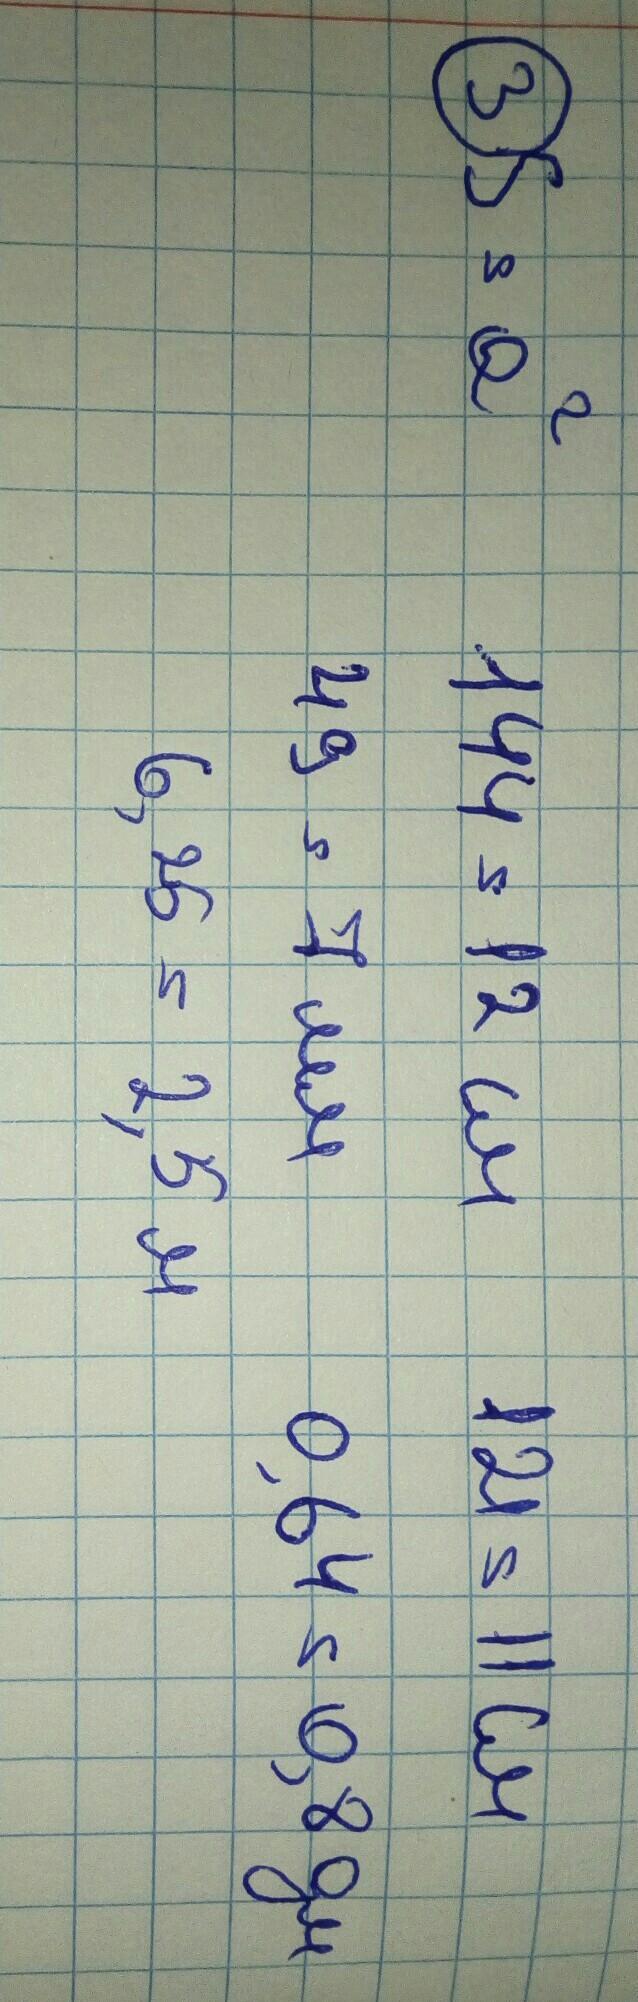 ③ S = a²
144 = 12 см 121 = 11 см
49 = 7 мм 0,64 = 0,8 дм
6,25 = 2,5 м